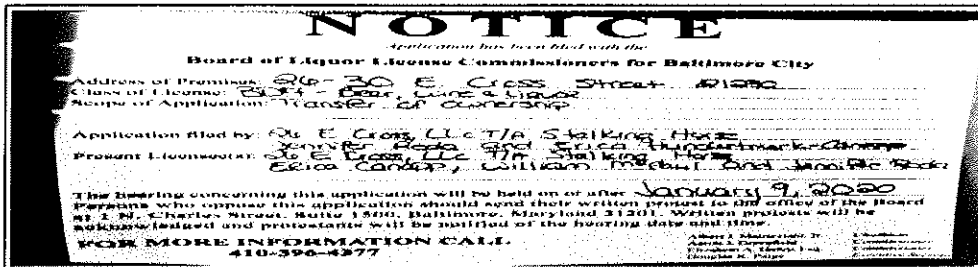 NOTICE
Application has been filed with the
Board of Liquor License Commissioners for Baltimore City
Address of Premises: 26-30 E. Cross Street 21230
Class of License: - Beer, Wine & Liquor
Scope of Application: Transfer of ownership
Application filed by: 26 E Cross, LLC T/A Stalking Horse
Jennifer Reda and Erica
Present Licensee(s): 26 E Cross, LLC T/A Stalking Horse
Erica William and Jennifer Reda
The hearing concerning this application will be held on or after January 9, 2020
Persons who oppose this application should send their written protest to the office of the Board
at 1 N. Charles Street, Suite 1500, Baltimore, Maryland 21201. Written protests will be
acknowledged and protestants will be notified of the hearing date and time.
FOR MORE INFORMATION CALL
410-396-4377